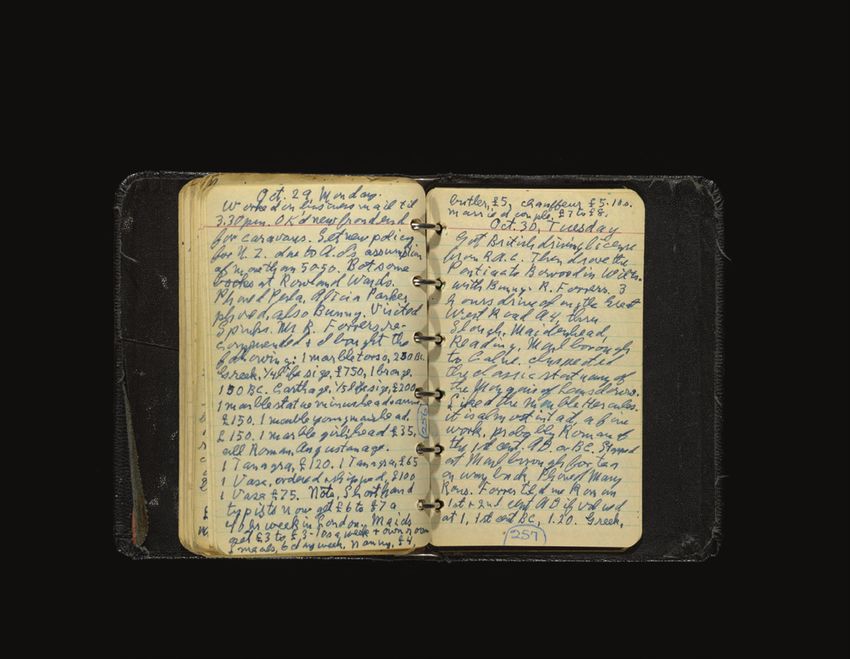 Oct. 29, Monday.
Worked on business mail til
3.30 pm. OK'd new front end
for caravans. Set new policy
for N. Z. due to A.d's assumption
of more than 50-50. Bot some
books at Rowland Wards.
Phoned Perla, Alicia Parker
phoned, also Bunny. Visited
Spinks. Mr R. Forrers re-
commended & I bought the
following: 1 marble torso, 200 BC.
Greek, 1/4 life size, £750, 1 bronze,
150 BC. Carthage, 1/5 life size, £200
1 marble statue minus head & arms
£150. 1 marble young mans head.
£150. 1 marble girls head £35.
all Roman, Augustan age.
1 Tanagra, £120. 1 Tanagra, £65
1 Vase, ordered & shipped, £100
1 Vase £75. Note, Shorthand
typists now get £6 to £7 a
40 hr week in London. Maids
get £3 to £3-10s a week + own room
3 meals, 6 day week, Nanny, £4,
256
butler, £5, chauffeur £5.10s.
married couple £7 to £8.
Oct. 30, Tuesday
Got British driving licence
from R.A.C. Then drove the
Pontiac to Bowood in Wilts.
with Bunny & R. Forrers. 3
hours drive on the Great
West Road A4, thru
Slough, Maidenhead,
Reading, Marlborough
to Calne. Inspected
the classic statuary of
the Marquis of Lansdowne.
Liked the marble Hercules.
it is almost intact, a fine
work, probably Roman of
the 1st cent. AD. or BC. Stopped
at Marlborough for tea
on way back, Phoned Mary
Rons. Forrer told me Roman
1st & 2nd cent. AD if valued
at 1, 1st cent BC, 1.20. Greek,
257